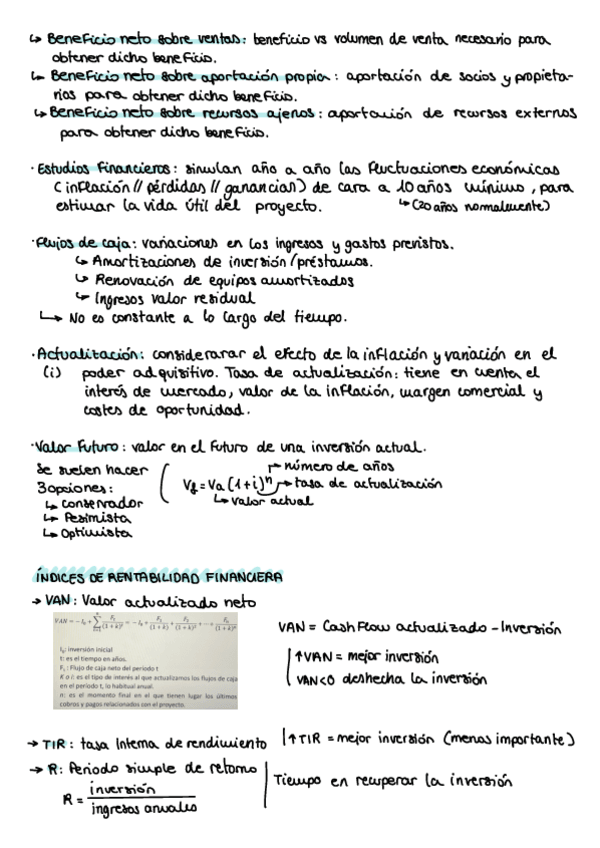 ↳ Beneficio neto sobre ventas: beneficio vs volumen de venta necesario para
obtener dicho beneficio.
↳ Beneficio neto sobre aportación propia: aportación de socios y propieta-
rios para obtener dicho beneficio.
↳ Beneficio neto sobre recursos ajenos: aportación de recursos externos
para obtener dicho beneficio.
· Estudios Financieros: simulan año a año las fluctuaciones económicas
(inflación // pérdidas // ganancias) de cara a 10 años mínimo, para
estimar la vida útil del proyecto. ↳ (20 años normalmente)
· Flujos de caja: variaciones en los ingresos y gastos previstos.
↳ Amortizaciones de inversión / préstamos.
↳ Renovación de equipos amortizados
↳ Ingresos valor residual
↳ No es constante a lo largo del tiempo.
· Actualización: considerarar el efecto de la inflación y variación en el
(i) poder adquisitivo. Tasa de actualización: tiene en cuenta el
interés de mercado, valor de la inflación, margen comercial y
costes de oportunidad.
· Valor Futuro: valor en el futuro de una inversión actual.
Se suelen hacer
3 opciones:
↳ conservador
↳ Pesimista
↳ Optimista
número de años
Vf = Va (1+i)^n → tasa de actualización
↳ valor actual
ÍNDICES DE RENTABILIDAD FINANCIERA
→ VAN: Valor actualizado neto
VAN = -I₀ + ∑ Fₜ/(1+k)^t = -I₀ + F₁/(1+k) + F₂/(1+k)² + ... + Fₙ/(1+k)ⁿ
I₀: inversión inicial
t: es el tiempo en años.
Fₜ: Flujo de caja neto del periodo t
K o i: es el tipo de interés al que actualizamos los flujos de caja
en el periodo t, lo habitual anual.
n: es el momento final en el que tienen lugar los últimos
cobros y pagos relacionados con el proyecto.
VAN = Cash Flow actualizado - Inversión
↑VAN = mejor inversión
VAN<0 deshecha la inversión
→ TIR: tasa Interna de rendimiento | ↑TIR = mejor inversión (menos importante)
→ R: Periodo simple de retorno
R = inversión / ingresos anuales
Tiempo en recuperar la inversión